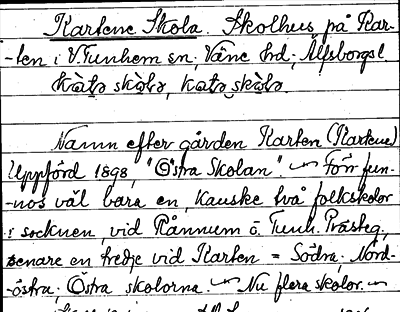 Kartene Skola. Skolhus på Kar-
-ten i V.Tunhem sn. Väne hd; Älfsborgs l
Namn efter gården Karten (Kartene)
Uppförd 1898, "Östra Skolan". ~ Förr fun-
-nos väl bara en, kanske två folkskolor
i socknen, vid Rånnum o. Tunh. Prästg.,
senare en tredje vid Karten = Södra; Nord-
-östra; Östra skolorna. ~ Nu flera skolor. ~